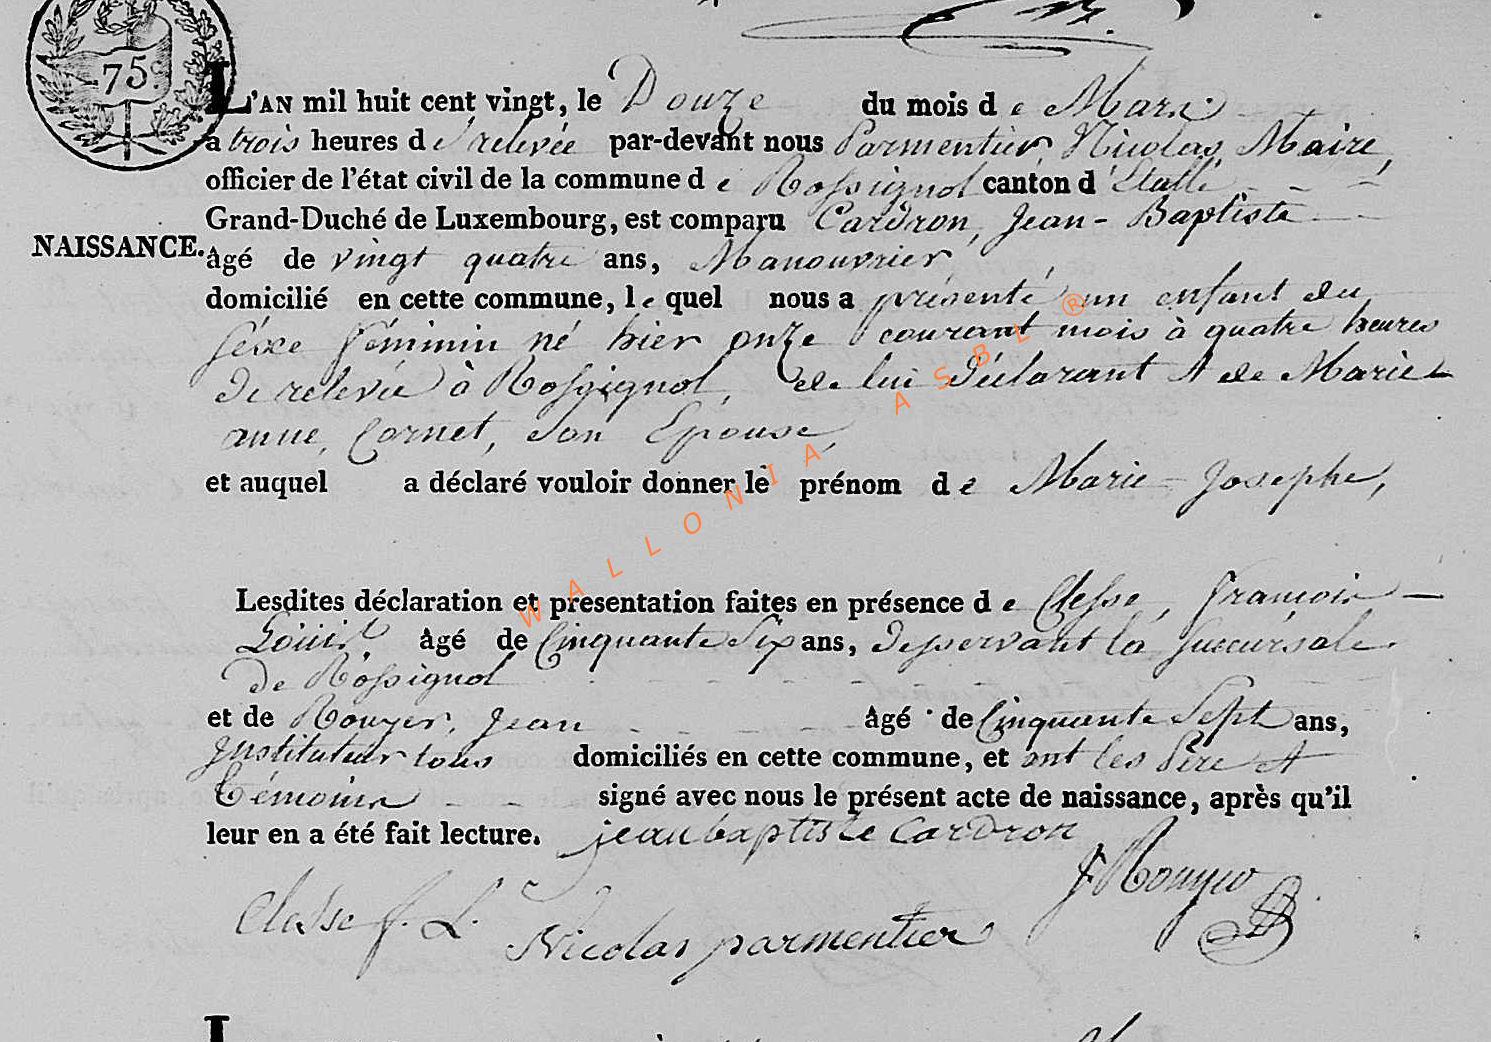 75
L'AN mil huit cent vingt, le Douze du mois de Mars
a trois heures de relevée par-devant nous Parmentier, Nicolas Maire,
officier de l'état civil de la commune de Rossignol canton d'Etalle
Grand-Duché de Luxembourg, est comparu Cardron, Jean-Baptiste
NAISSANCE. âgé de vingt quatre ans, Manouvrier
domicilié en cette commune, le quel nous a présenté un enfant du
séxe féminin né hier onze courant mois à quatre heures
de relevée à Rossignol, de lui déclarant et de Marie
anne, Cornet, son Epouse,
et auquel a déclaré vouloir donner le prénom de Marie-Josephe,
Lesdites déclaration et presentation faites en présence de Clesse, François-
Louis, âgé de Cinquante Six ans, desservant la succursale
de Rossignol
et de Rouyer, Jean âgé de Cinquante Sept ans,
Instituteur tous domiciliés en cette commune, et ont les Père et
Témoins signé avec nous le présent acte de naissance, après qu'il
leur en a été fait lecture. jean baptiste Cardron
J. Rouyer
Clesse f. L.
Nicolas parmentier
WALLONIA ASBL ®